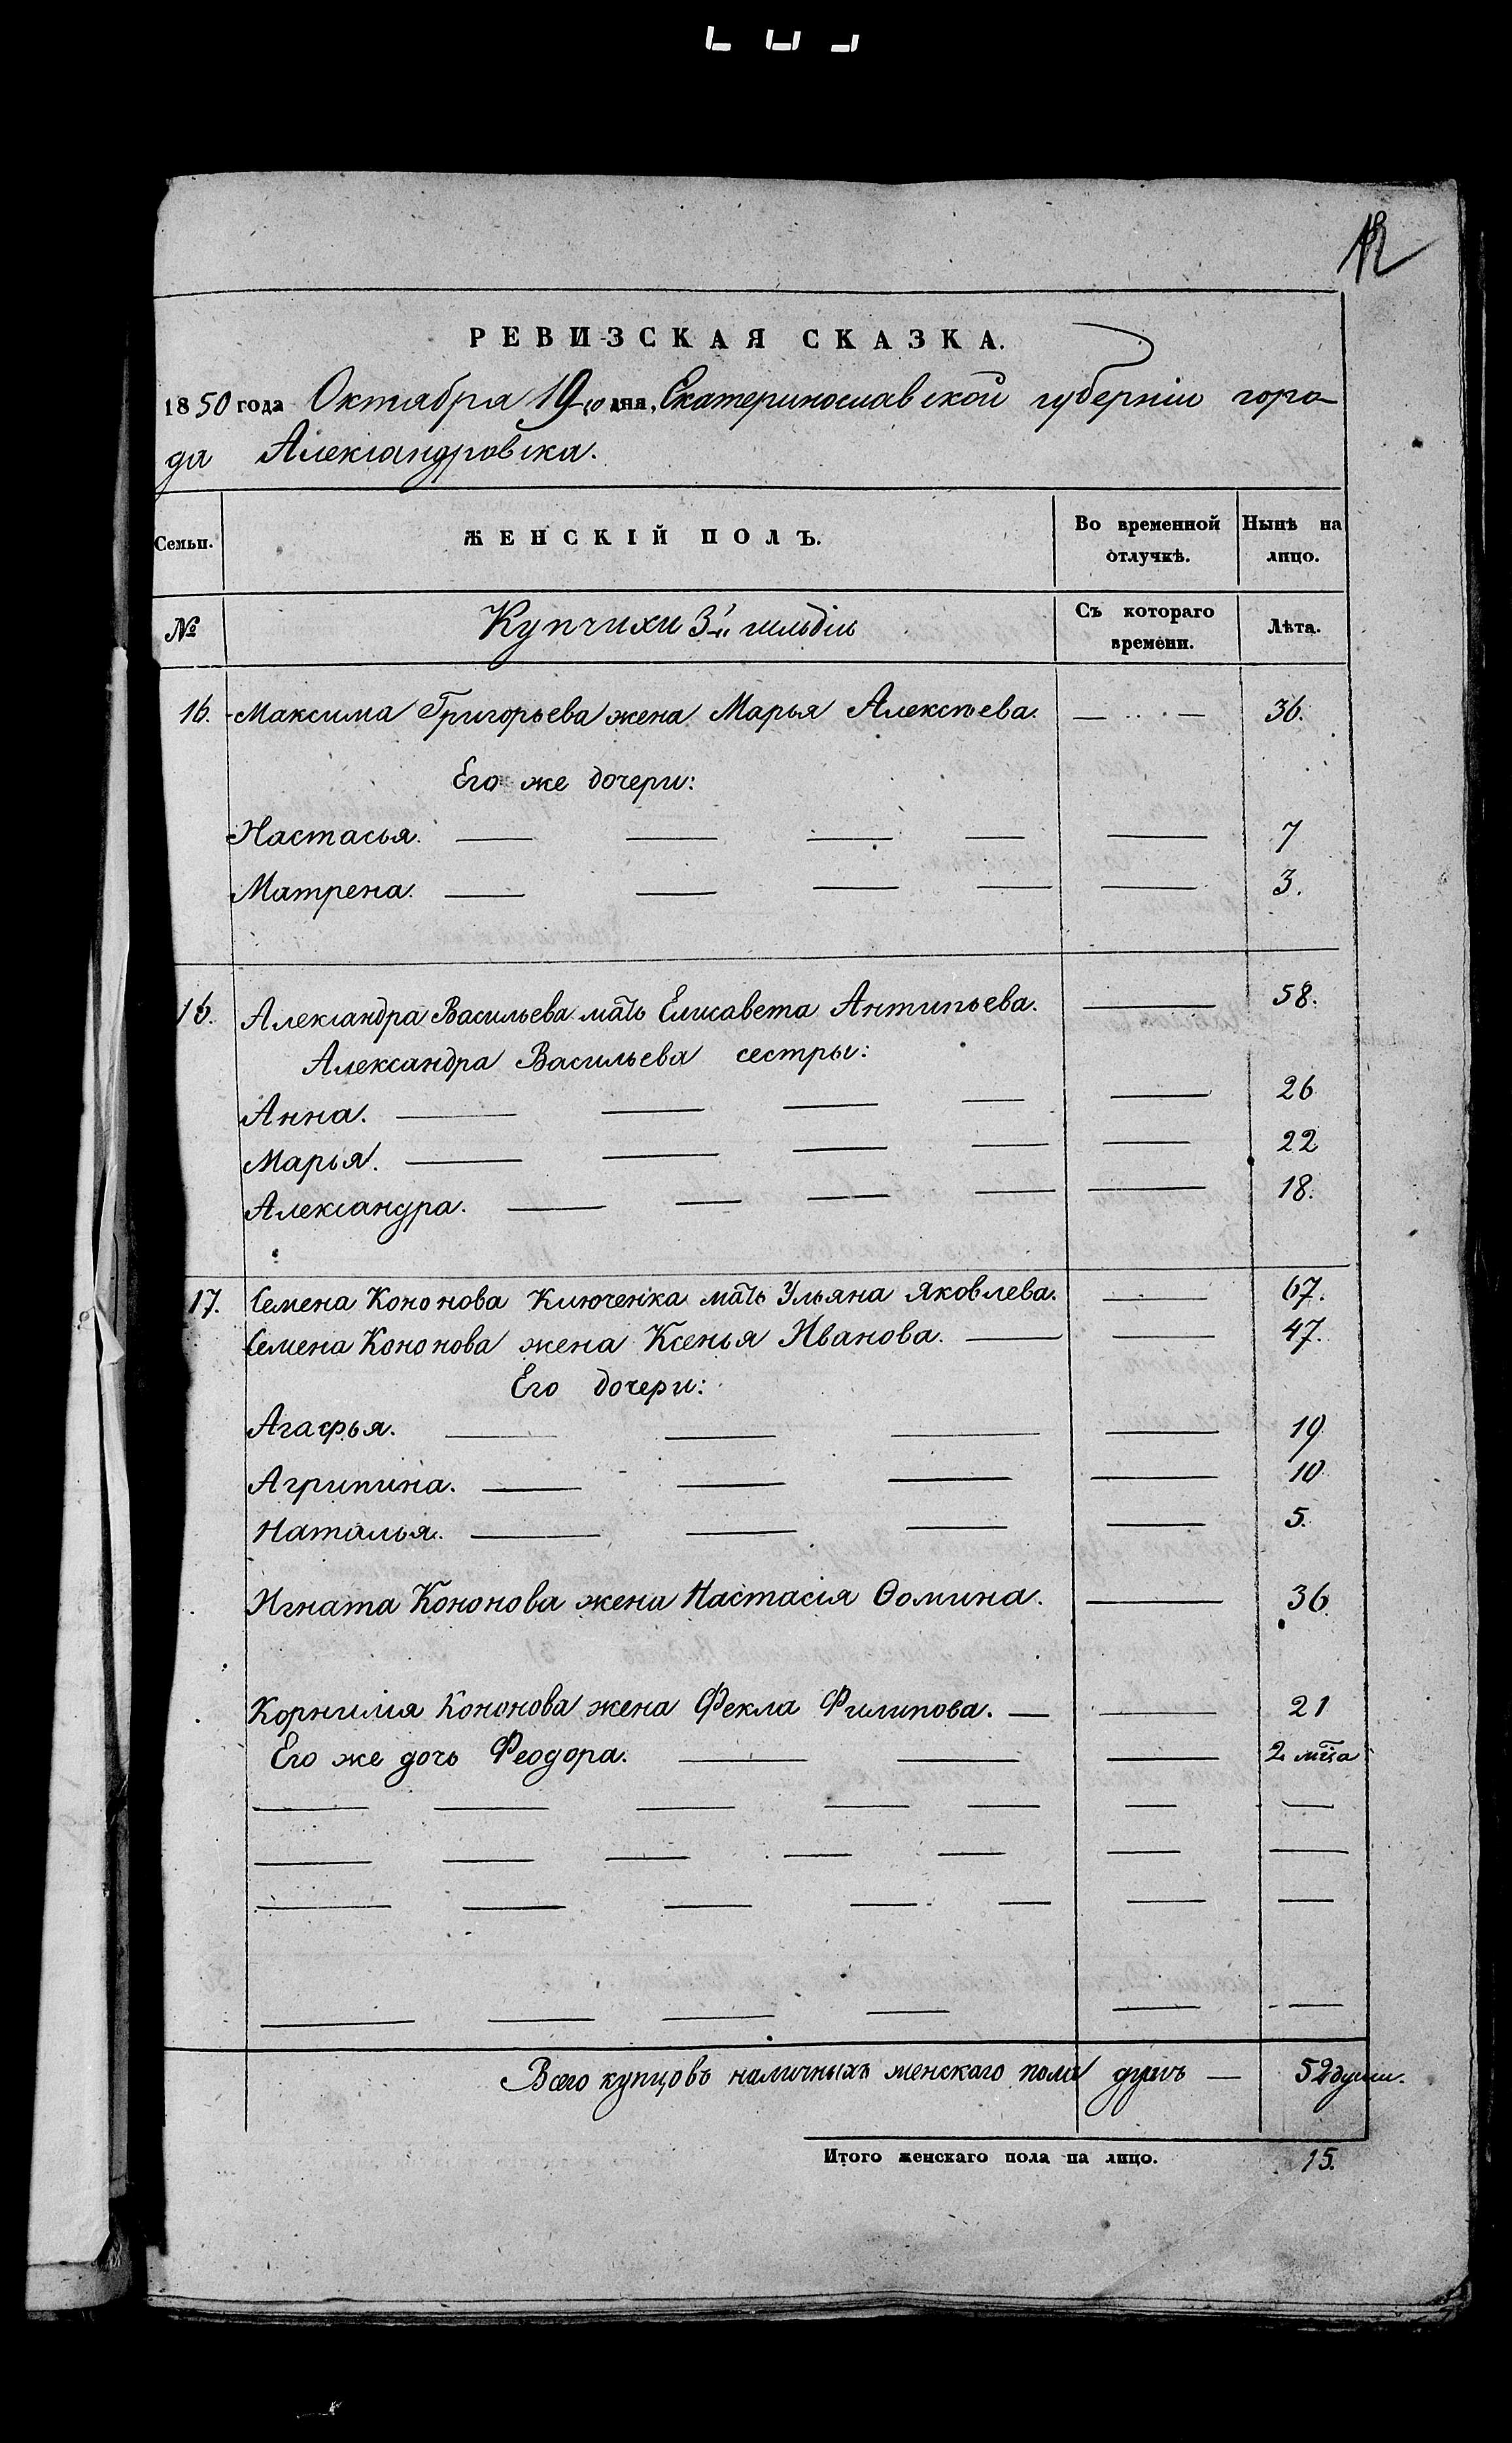 12
РЕВИЗСКАЯ СКАЗКА.
1850 года Октября 19го дня, Екатеринославской губерніи горо-
да Александровска.
Семьи. ЖЕНСКІЙ ПОЛЪ. Во временной отлучкѣ. Нынѣ на лицо.
№ Купчихи 3й гильдіи Съ котораго времени. Лѣта.
16. Максима Григорьева жена Марья Алексѣева. — — 36.
Его же дочери:
Настасья. — — — — — 7
Матрена. — — — — — 3.
16. Александра Васильева мать Елисавета Антипьева. — 58.
Александра Васильева сестры:
Анна. — — — — — 26
Марья. — — — — — 22
Александра. — — — — — 18.
17. Семена Кононова Ключенка мать Ульяна Яковлева. — 67.
Семена Кононова жена Ксенья Иванова. — — 47.
Его дочери:
Агафья. — — — — 19
Агрипина. — — — — 10
Наталья. — — — — 5.
Игната Кононова жена Настасія Ѳомина. — 36.
Корнилія Кононова жена Фекла Филипова. — — 21
Его же дочь Феодора. — — — 2 мца
— — — — — — —
— — — — — — —
— — — — — — —
— — — — — —
Всего купцовъ наличныхъ женскаго пола душъ — 52 души.
Итого женскаго пола на лицо. 15.